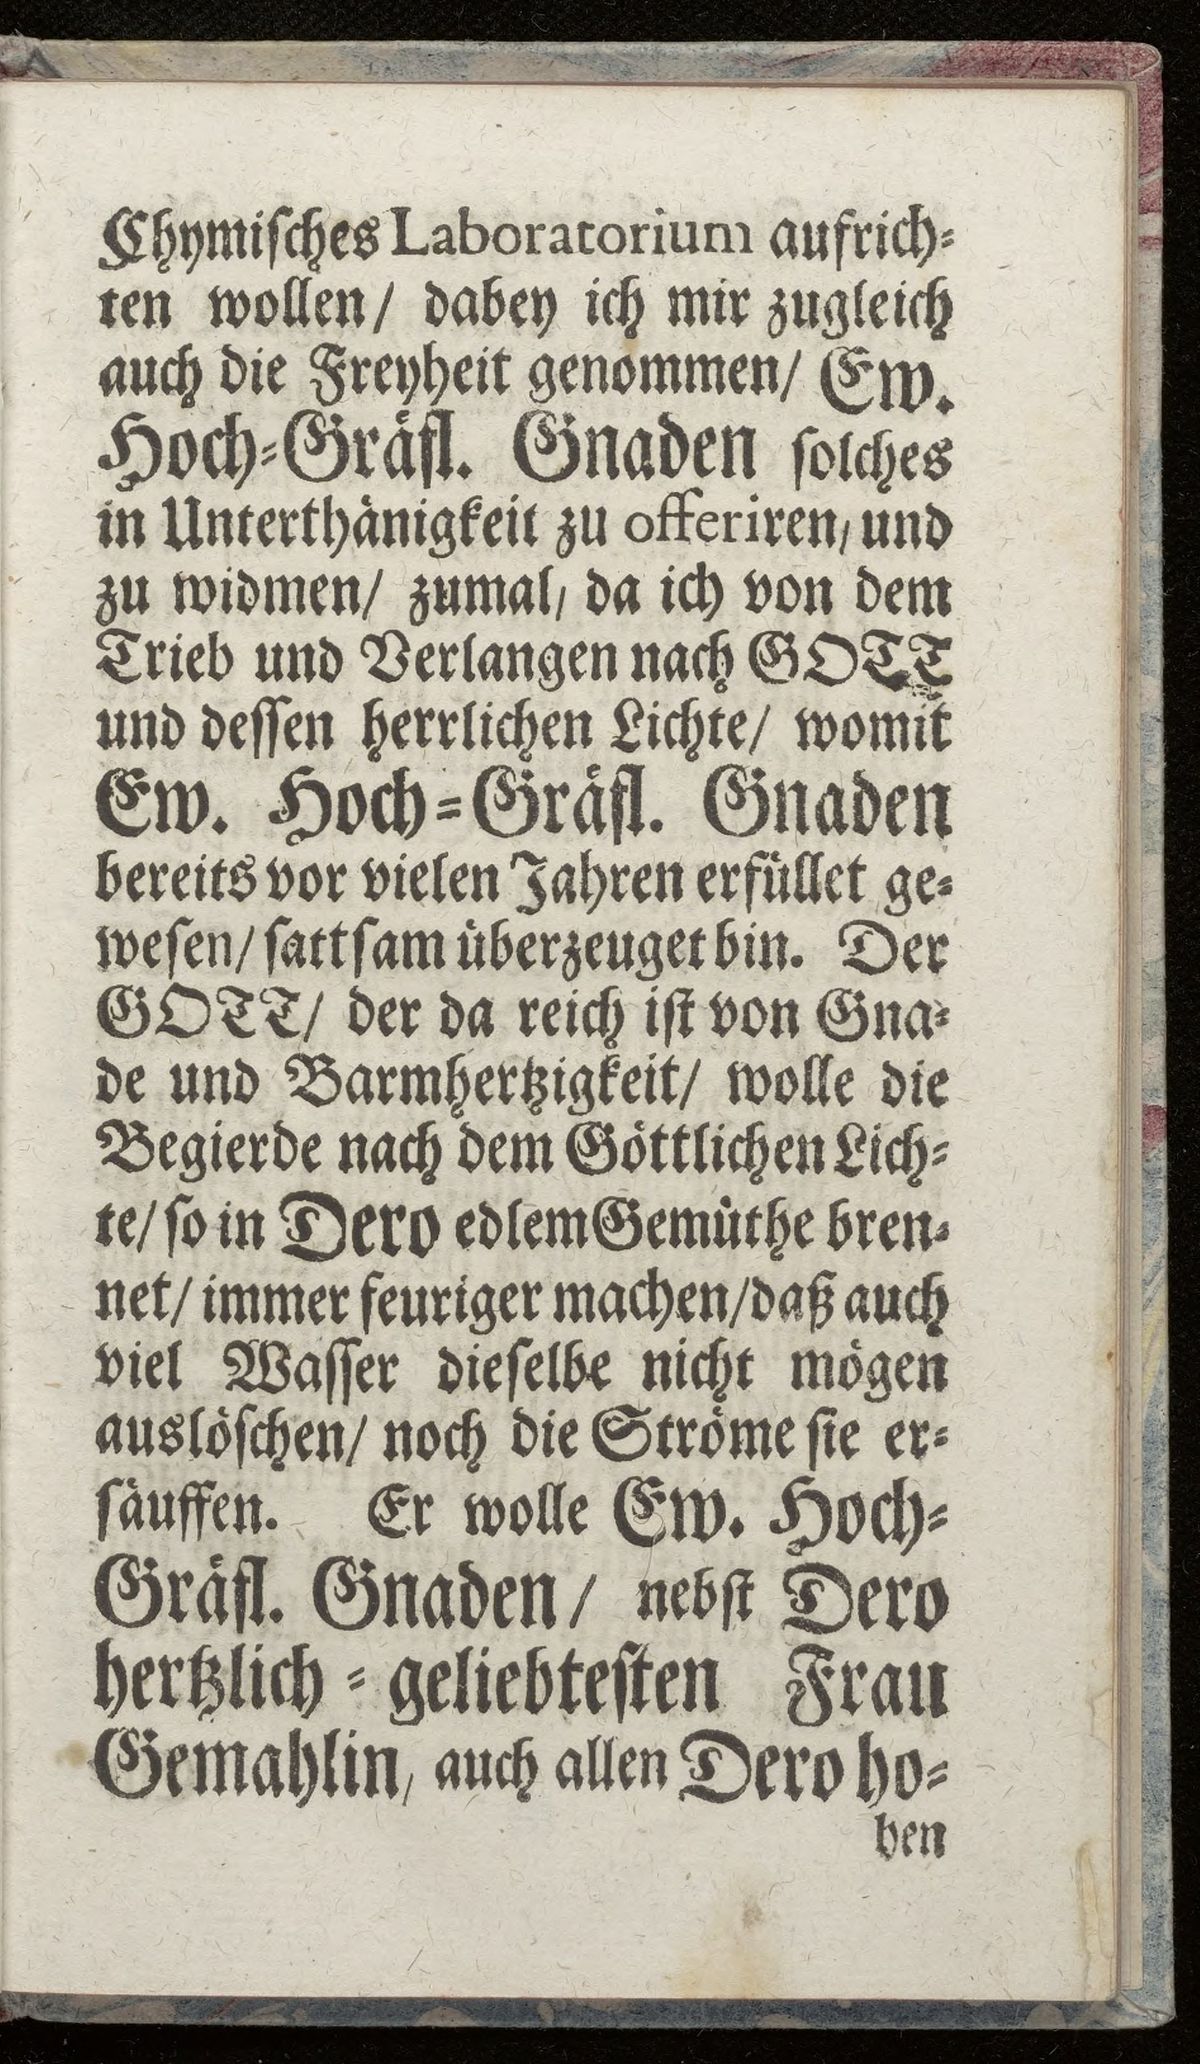 Chymiſches Laboratorium aufrich⸗
ten wollen/ dabey ich mir zugleich
auch die Freyheit genommen/ Ew.
Hoch⸗Gräfl. Gnaden ſolches
in Unterthänigkeit zu offeriren/ und
zu widmen/ zumal/ da ich von dem
Trieb und Verlangen nach GOTT
und deſſen herrlichen Lichte/ womit
Ew. Hoch⸗Gräfl. Gnaden
bereits vor vielen Jahren erfüllet ge⸗
weſen/ ſattſam überzeuget bin. Der
GOTT/ der da reich iſt von Gna⸗
de und Barmhertzigkeit/ wolle die
Begierde nach dem Göttlichen Lich⸗
te/ ſo in Dero edlem Gemüthe bren⸗
net/ immer feuriger machen/ daß auch
viel Waſſer dieſelbe nicht mögen
auslöſchen/ noch die Ströme ſie er⸗
ſäuffen. Er wolle Ew. Hoch⸗
Gräfl. Gnaden/ nebſt Dero
hertzlich⸗geliebteſten Frau
Gemahlin/ auch allen Dero ho⸗
ben